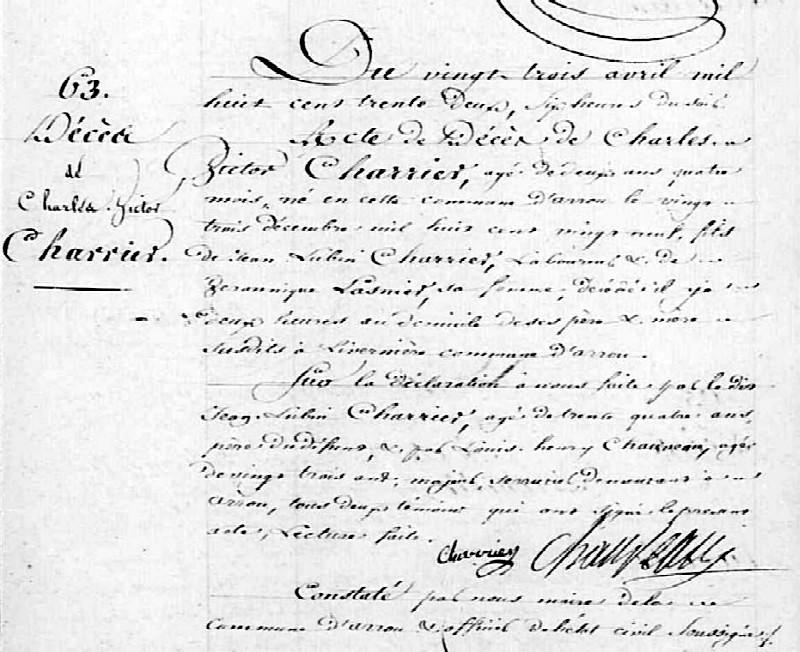 63.
Décès
de
Charles Victor
Charrier.
Du vingt trois avril mil
huit cent trente deux, six heures du soir
Acte de Décès de Charles
Victor Charrier, agé de deux ans quatre
mois, né en cette commune d'arrou le vingt
trois décembre mil huit cent vingt neuf, fils
de Jean Lubin Charrier, Laboureur & de
Veronnique Lasnier, sa femme, décédé il y a
deux heures au domicile de ses père & mère
susdits à commune d'arrou.
Sur la déclaration à nous faite par le dit
Jean Lubin Charrier, agé de trente quatre ans,
père du défunt, & par Louis henry agé
de vingt trois ans, majeur, serrurier demeurant à
arrou, tous deux témoins qui ont signé le présent
acte, Lecture faite.
Charrier
Constaté par nous maire de la
Commune d'arrou & officier de l'état civil soussigné